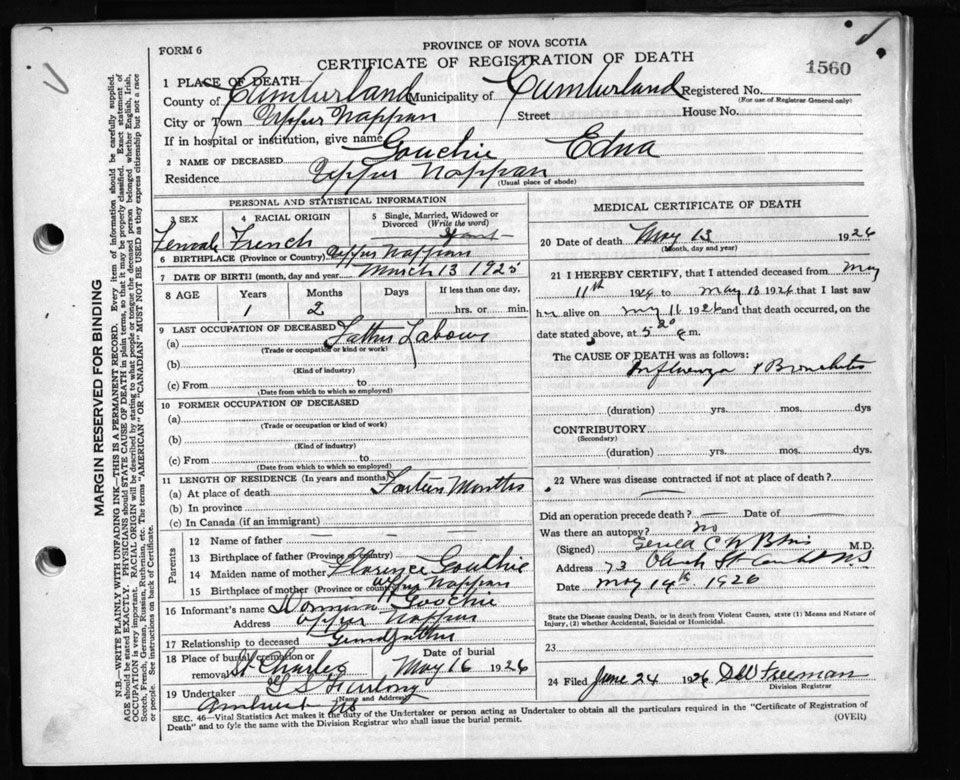 FORM 6
PROVINCE OF NOVA SCOTIA
CERTIFICATE OF REGISTRATION OF DEATH
1560
1 PLACE OF DEATH—
County of Cumberland Municipality of Cumberland Registered No.
(For use of Registrar General only)
City or Town Upper Nappan Street House No.
If in hospital or institution, give name
2 NAME OF DECEASED Gouchie Edna
Residence Upper Nappan
(Usual place of abode)
PERSONAL AND STATISTICAL INFORMATION
3 SEX 4 RACIAL ORIGIN 5 Single, Married, Widowed or Divorced (Write the word)
Female French
6 BIRTHPLACE (Province or Country) Upper Nappan
7 DATE OF BIRTH (month, day and year) March 13 1925
8 AGE Years Months Days If less than one day,
1 2 hrs. or min.
9 LAST OCCUPATION OF DECEASED
(a) Father Labour
(Trade or occupation or kind of work)
(b)
(Kind of industry)
(c) From to
(Date from which to which so employed)
10 FORMER OCCUPATION OF DECEASED
(a)
(Trade or occupation or kind of work)
(b)
(Kind of industry)
(c) From to
(Date from which to which so employed)
11 LENGTH OF RESIDENCE (In years and months)
(a) At place of death Months
(b) In province
(c) In Canada (if an immigrant)
Parents
12 Name of father — — —
13 Birthplace of father (Province or country)
14 Maiden name of mother Florence Gouthie
15 Birthplace of mother (Province or country) Upper Nappan
16 Informant's name Goochie
Address Upper Nappan
17 Relationship to deceased Grandfather
18 Place of burial, cremation or removal St Charles Date of burial May 16 1926
19 Undertaker
(Name and Address)
Amherst NS
MEDICAL CERTIFICATE OF DEATH
20 Date of death May 13 1926
(Month, day and year)
21 I HEREBY CERTIFY, that I attended deceased from May
11th 1926 to May 13 1926 that I last saw
her alive on May 11 1926 and that death occurred, on
date stated above, at 5 m.
The CAUSE OF DEATH was as follows:
Influenza & Bronchitis
(duration) yrs. mos. dys
CONTRIBUTORY
(Secondary)
(duration) yrs. mos. dys.
22 Where was disease contracted if not at place of death?
—
Did an operation precede death? — Date of —
Was there an autopsy? no
(Signed) M.D.
Address 73
Date May 14th 1926
State the Disease causing Death, or in death from Violent Causes, state (1) Means and Nature of Injury, (2) whether Accidental, Suicidal or Homicidal.
23
24 Filed June 24 1926 Freeman
Division Registrar
SEC. 46—Vital Statistics Act makes it the duty of the Undertaker or person acting as Undertaker to obtain all the particulars required in the "Certificate of Registration of
Death" and to fyle the same with the Division Registrar who shall issue the burial permit.
(OVER)
MARGIN RESERVED FOR BINDING
N.B.—WRITE PLAINLY WITH UNFADING INK—THIS IS A PERMANENT RECORD. Every item of information should be carefully supplied.
AGE should be stated EXACTLY. PHYSICIANS should STATE CAUSE OF DEATH in plain terms, so that it may be properly classified. Exact statement of
OCCUPATION is very important. RACIAL ORIGIN will be described by stating to what people or tongue the deceased person belonged whether English, Irish,
Scotch, French, German, Russian, Ruthenian, etc. The terms "AMERICAN" OR "CANADIAN" MUST NOT BE USED as they express citizenship but not a race
or people. See instructions on back of Certificate.